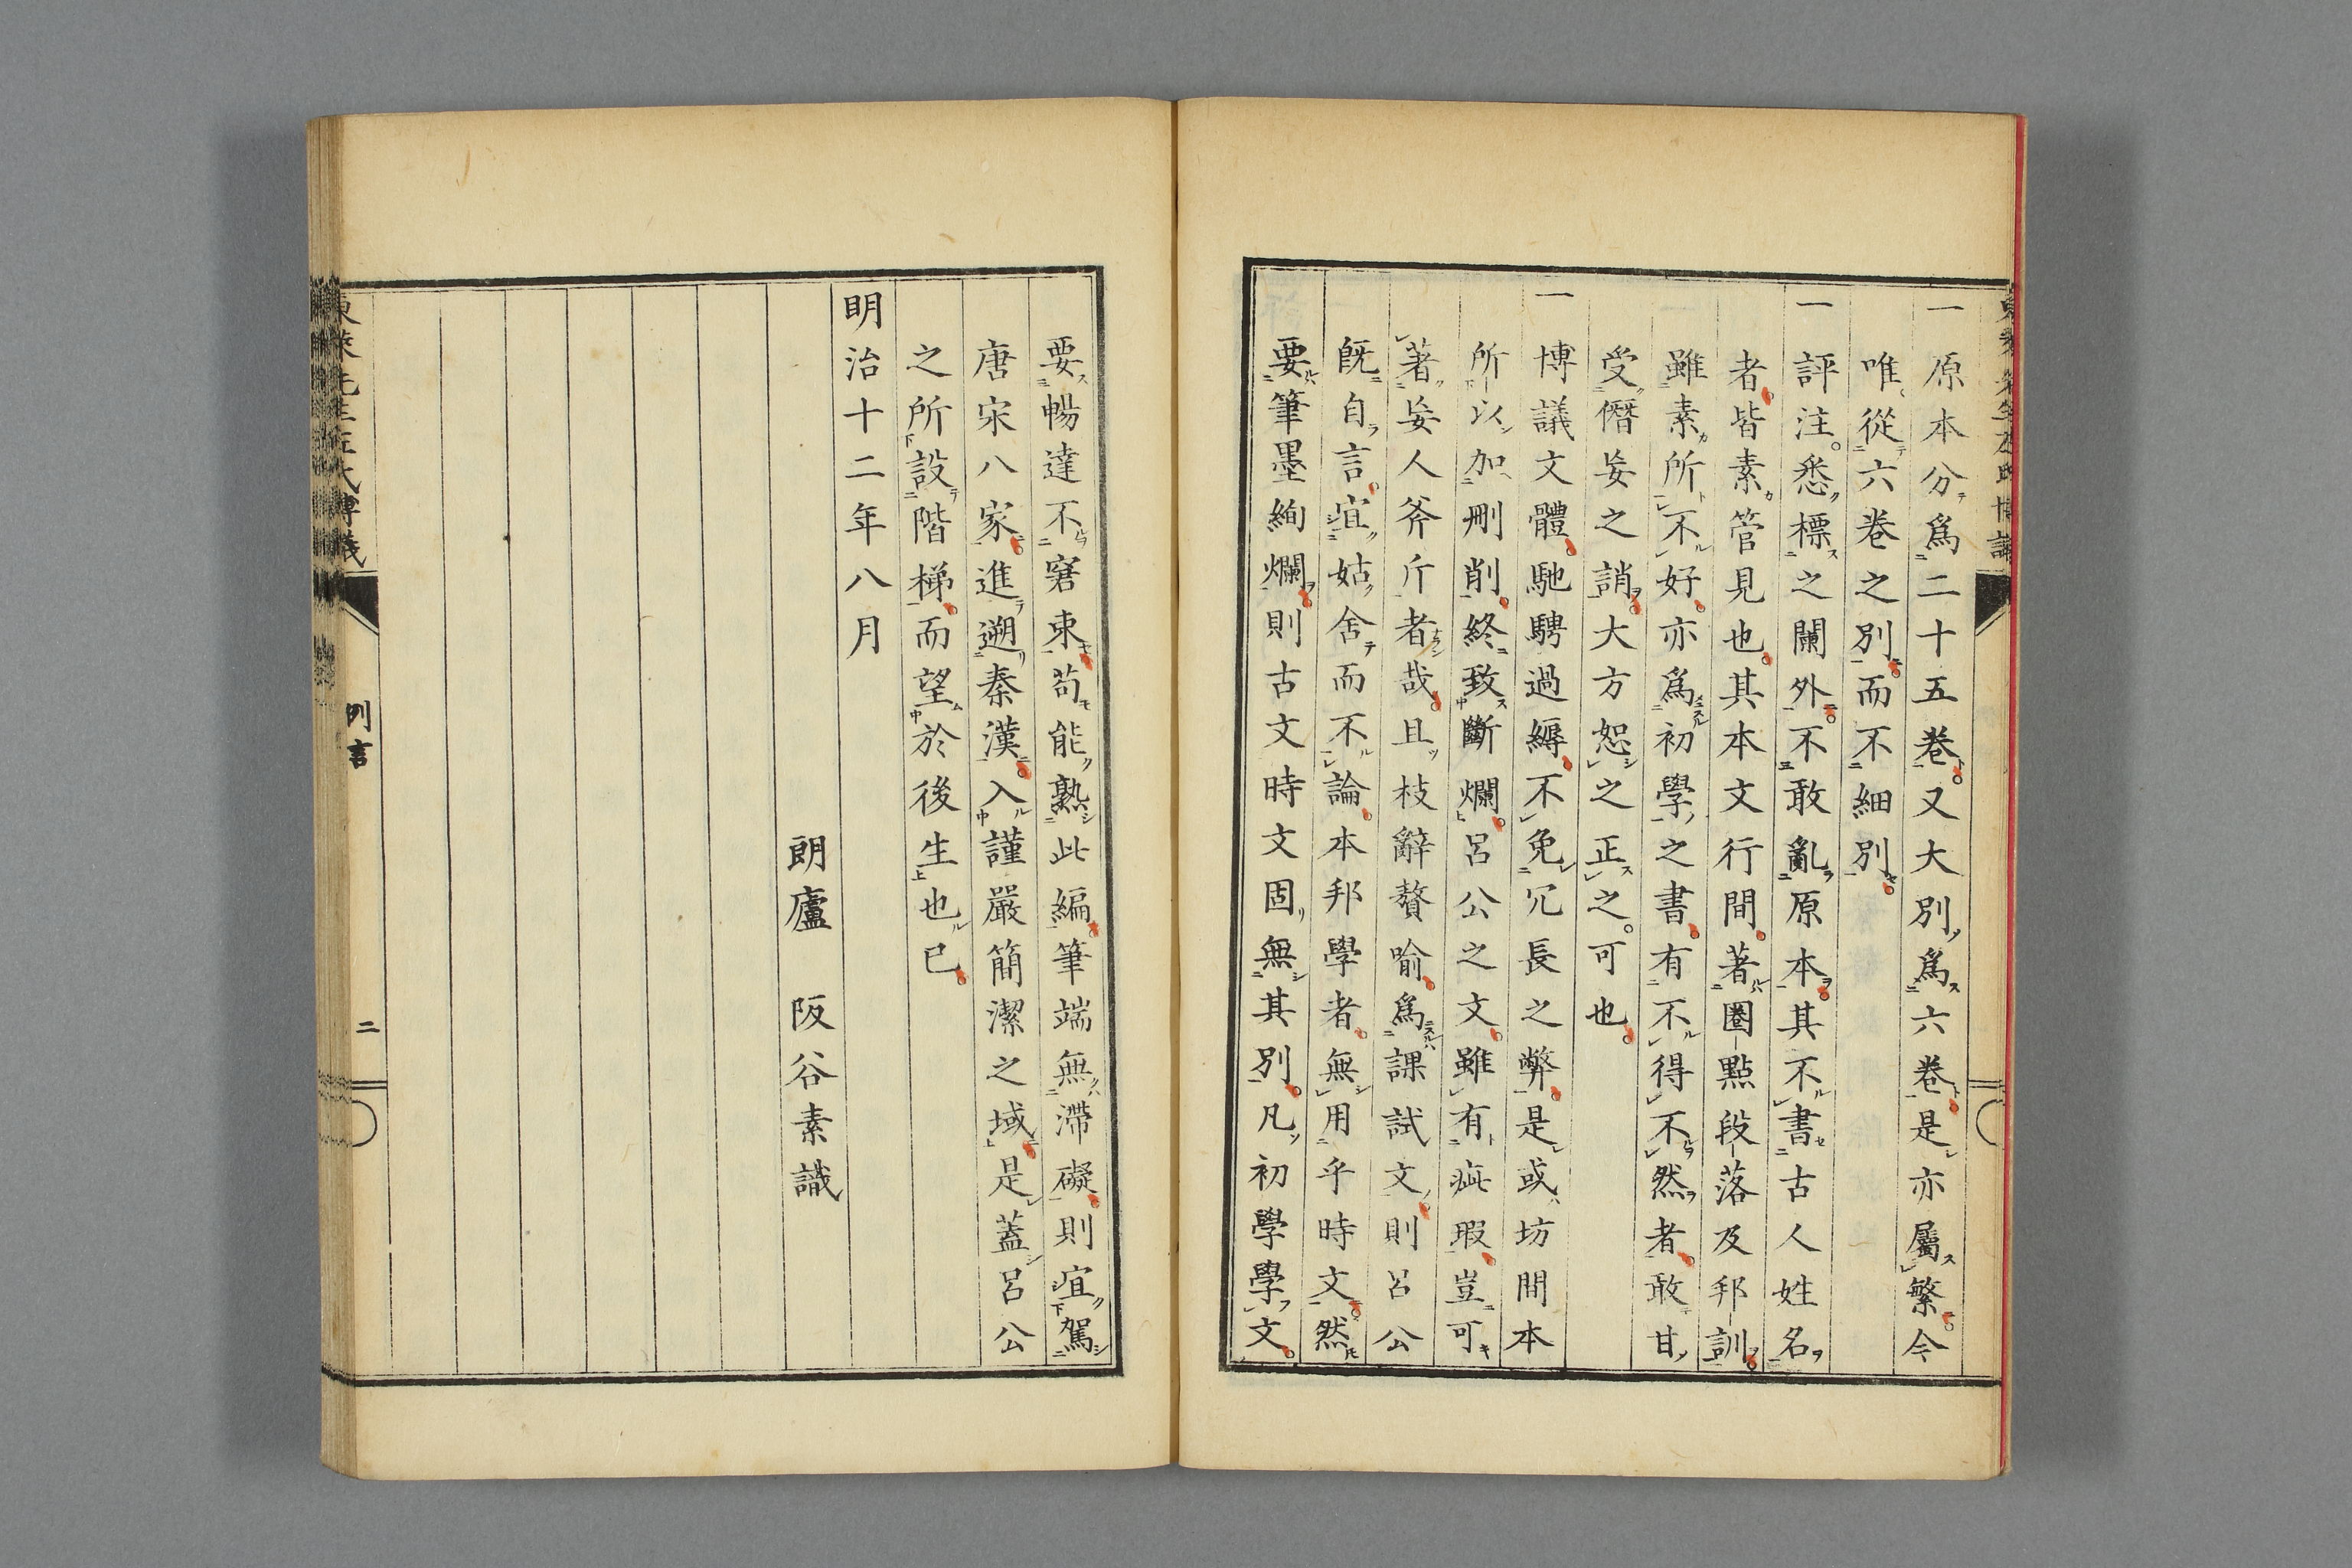 一原本分爲二十五卷又大別爲六卷是亦屬繁今
唯從六卷之別而不細別
一評注悉標之闌外不敢亂原本其不書古人姓名
者皆素管見也其本文行間著圈點段落及邦訓
雖素所不好亦爲初學之書有不得不然者敢甘
受僭妄之誚大方恕之正之可也
一博議文體馳騁過縟不免冗長之弊是或坊間本
所以加刪削終致斷爛呂公之文雖有疵瑕豈可
著妄人斧斤者哉且枝辭贅喩爲課試文則呂公
既自言宜姑舍而不論本邦學者無用乎時文然
要筆墨絢爛則古文時文固無其別凡初學學文
要暢達不窘束苟能熟此編筆端無滯礙則宜駕
唐宋八家進遡秦漢入謹嚴簡潔之域是蓋呂公
之所設階梯而望於後生也已
明治十二年八月
朗廬 阪谷素識
東萊先生左氏博議
例言
二